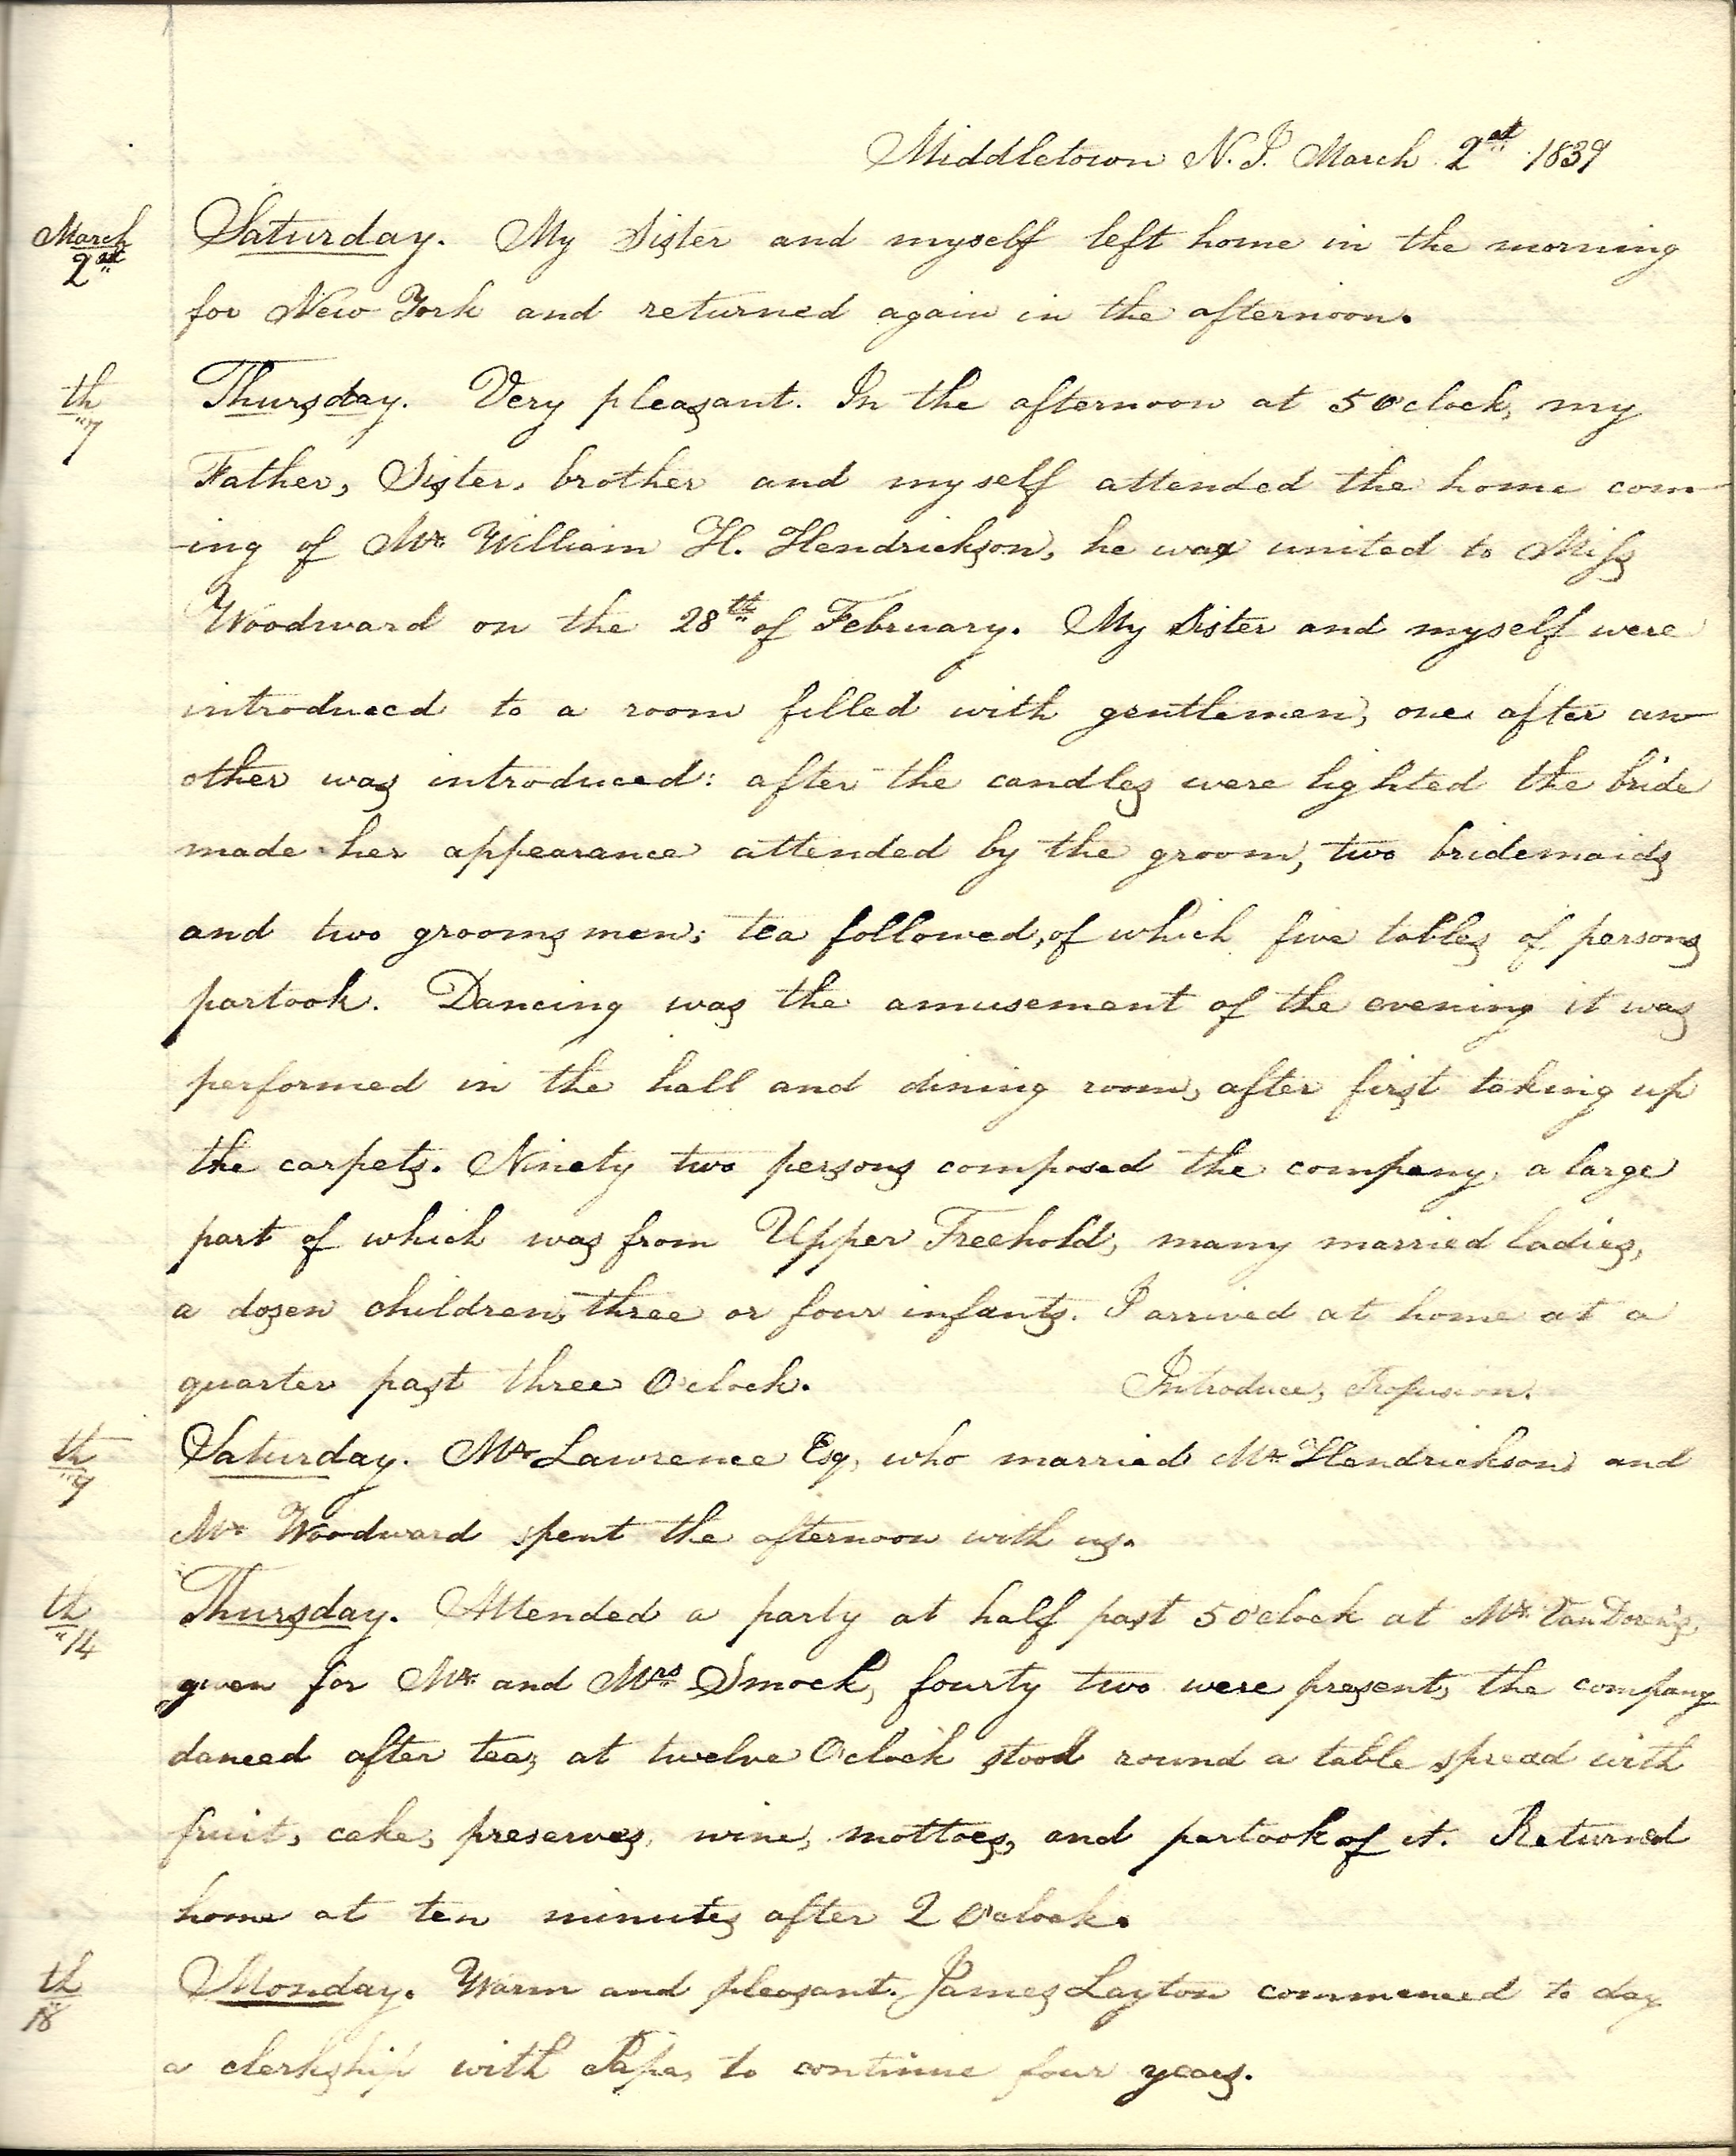 Middletown N.J. March 2nd 1839
March 2nd
Saturday. My Sister and myself left home in the morning
for New York and returned again in the afternoon.
th 7
Thursday. Very pleasant. In the afternoon at 5 O'clock, my
Father, Sister, brother and myself attended the home com-
-ing of Mr. William H. Hendrickson, he was united to Miss
Woodward on the 28th of February. My Sister and myself were
introduced to a room filled with gentlemen, one after an-
other was introduced: after the candles were lighted the bride
made her appearance attended by the groom, two bridemaids
and two grooms men; tea followed, of which five tables of persons
partook. Dancing was the amusement of the evening it was
performed in the hall and dining room, after first taking up
the carpets. Ninety two persons composed the company, a large
part of which was from Upper Freehold, many married ladies,
a dozen children, three or four infants. I arrived at home at a
quarter past three O'clock. Introduce, Profusion.
th 9
Saturday. Mr. Lawrence Esq, who married Mr. Hendrickson and
Mr Woodward spent the afternoon with us.
th 14
Thursday. Attended a party at half past 5 O'clock at Mr. Van Doren's,
given for Mr. and Mrs. Smock, fourty two were present, the company
danced after tea, at twelve O'clock stood round a table spread with
fruit, cake, preserves, wine, mottoes, and partook of it. Returned
home at ten minutes after 2 O'clock.
th 18
Monday. Warm and pleasant. James Layton commenced to day
a clerkship with Papa, to continue four years.